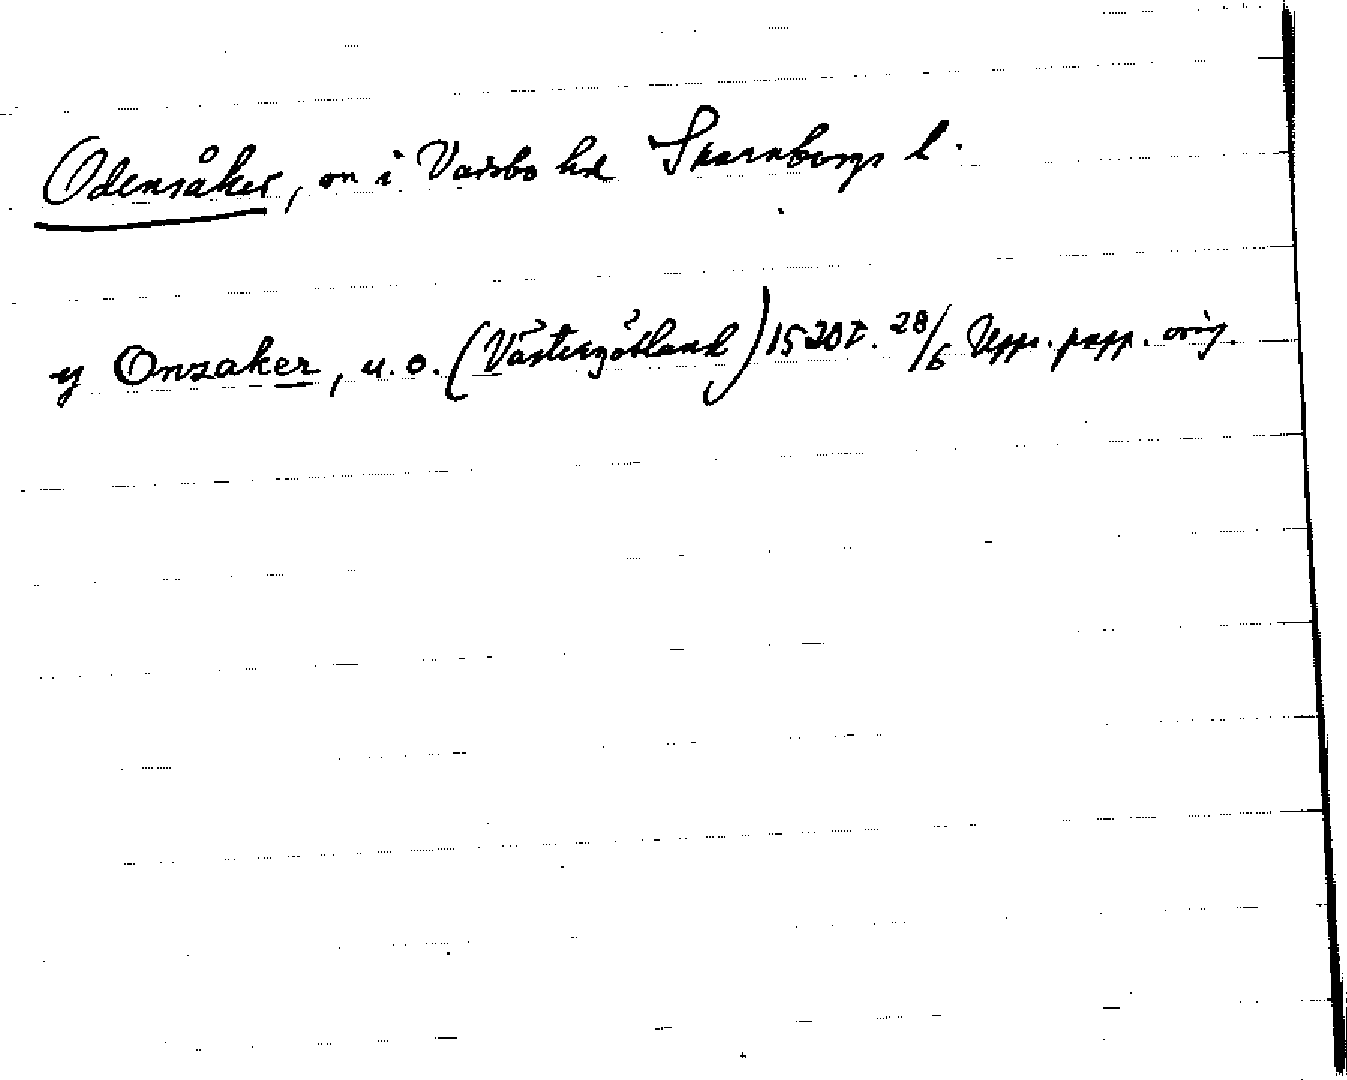 Odensåker, sn i Vadsbo hd Skaraborgs l.
y Onsaker, u.o. (Västergötland) 1520 t. 28/6 Upps. papp. orig.